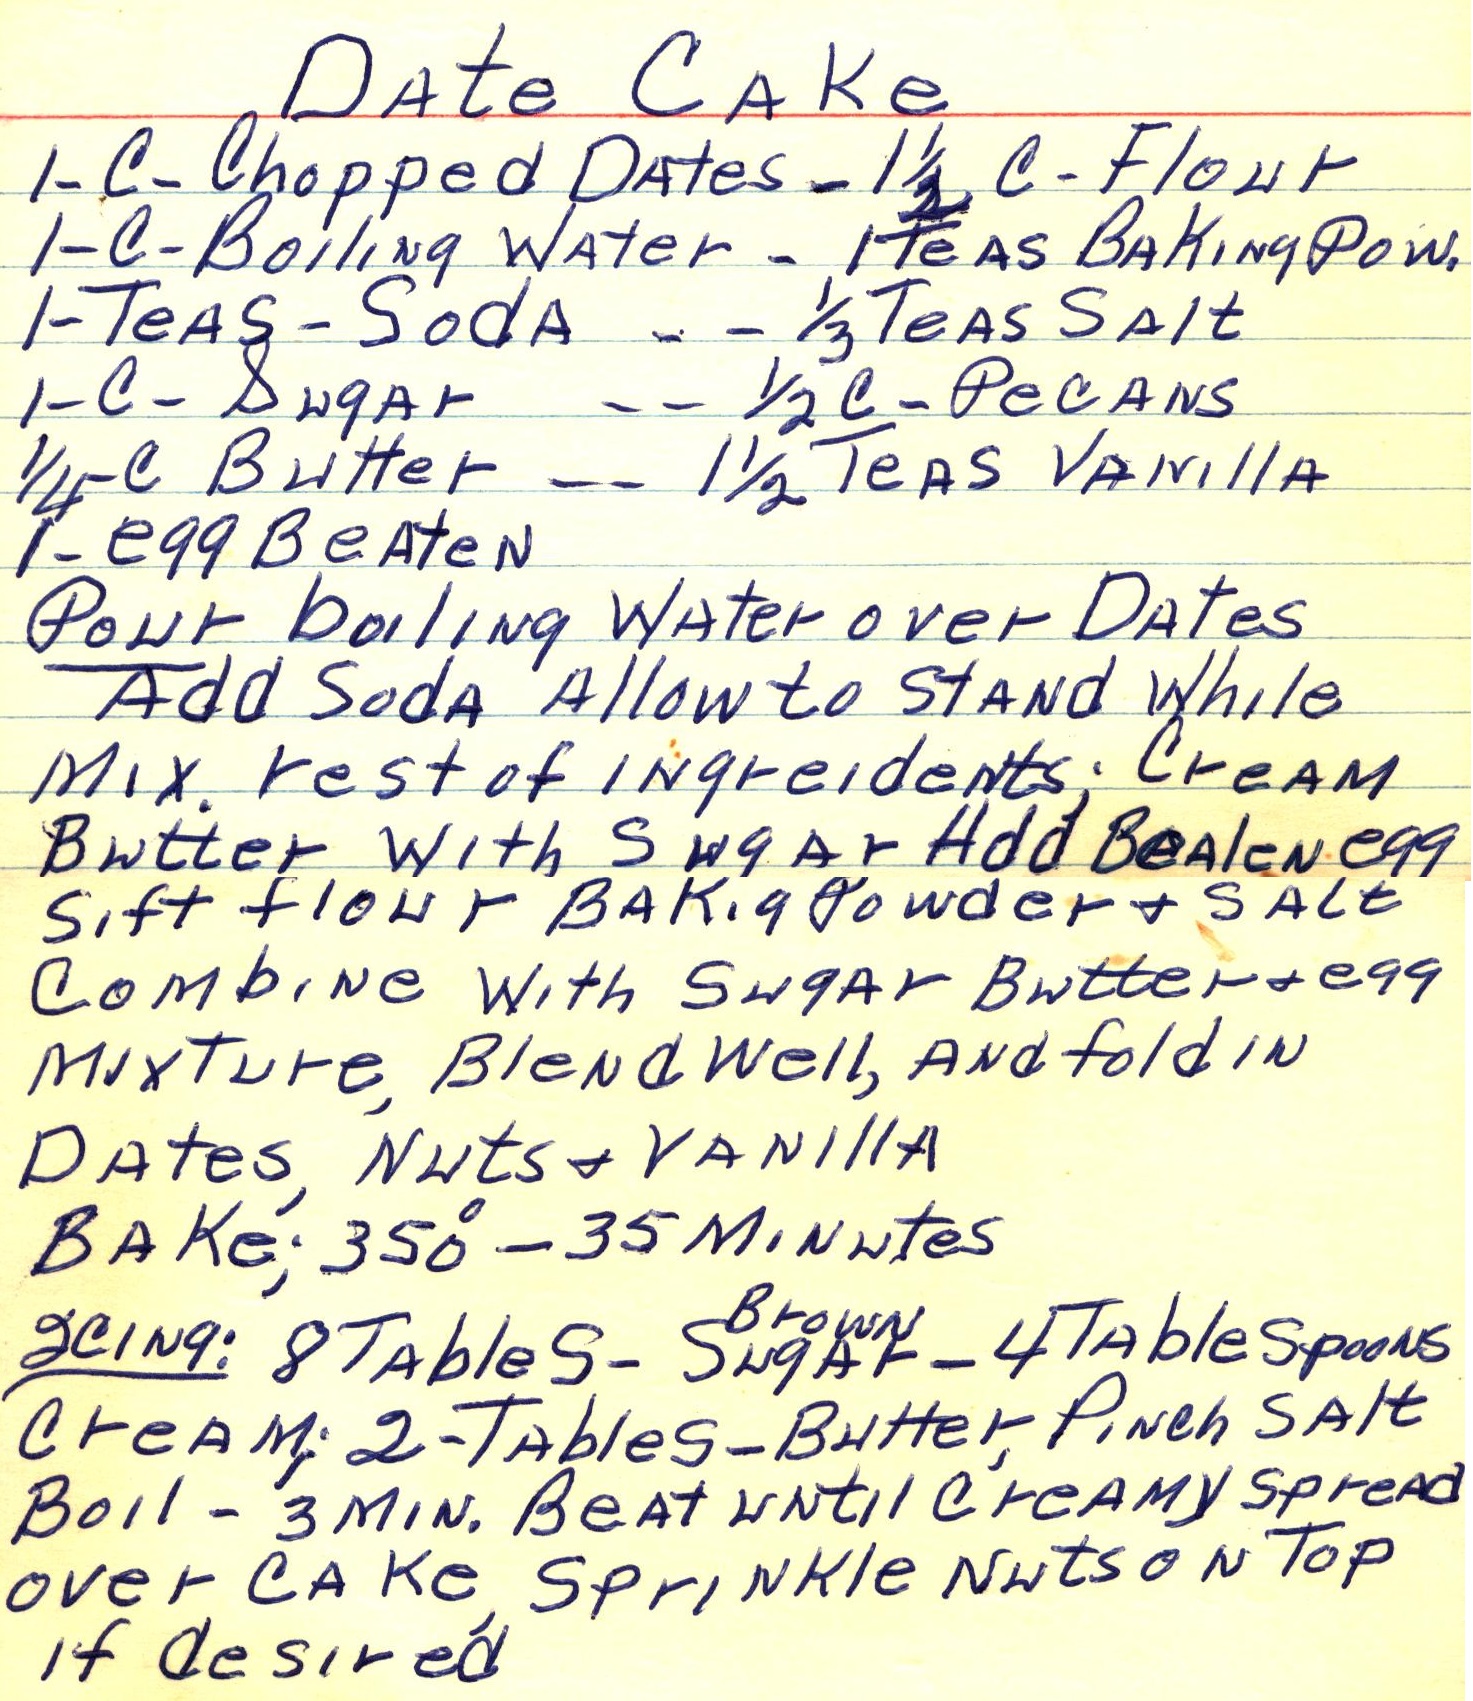 Date Cake
1-C-Chopped Dates - 1½ C-Flour
1-C-Boiling Water - 1 Teas Baking Pow.
1-Teas-Soda -- ⅓ Teas Salt
1-C-Sugar -- ½ C-Pecans
¼-C Butter -- 1½ Teas Vanilla
1-egg Beaten
Pour boiling Water over Dates
Add Soda Allow to Stand While
Mix. rest of ingreidents; Cream
Butter With Sugar Add Beaten egg
Sift flour Bakig Powder + Salt
Combine With Sugar Butter + egg
Mixture, Blend Well, And fold in
Dates, Nuts + Vanilla
Bake; 350° - 35 Minutes
Icing: 8 Tables - Brown Sugar - 4 Tablespoons
Cream; 2-Tables - Butter, Pinch Salt
Boil - 3 Min. Beat until Creamy Spread
over Cake, Sprinkle Nuts on Top
if desired